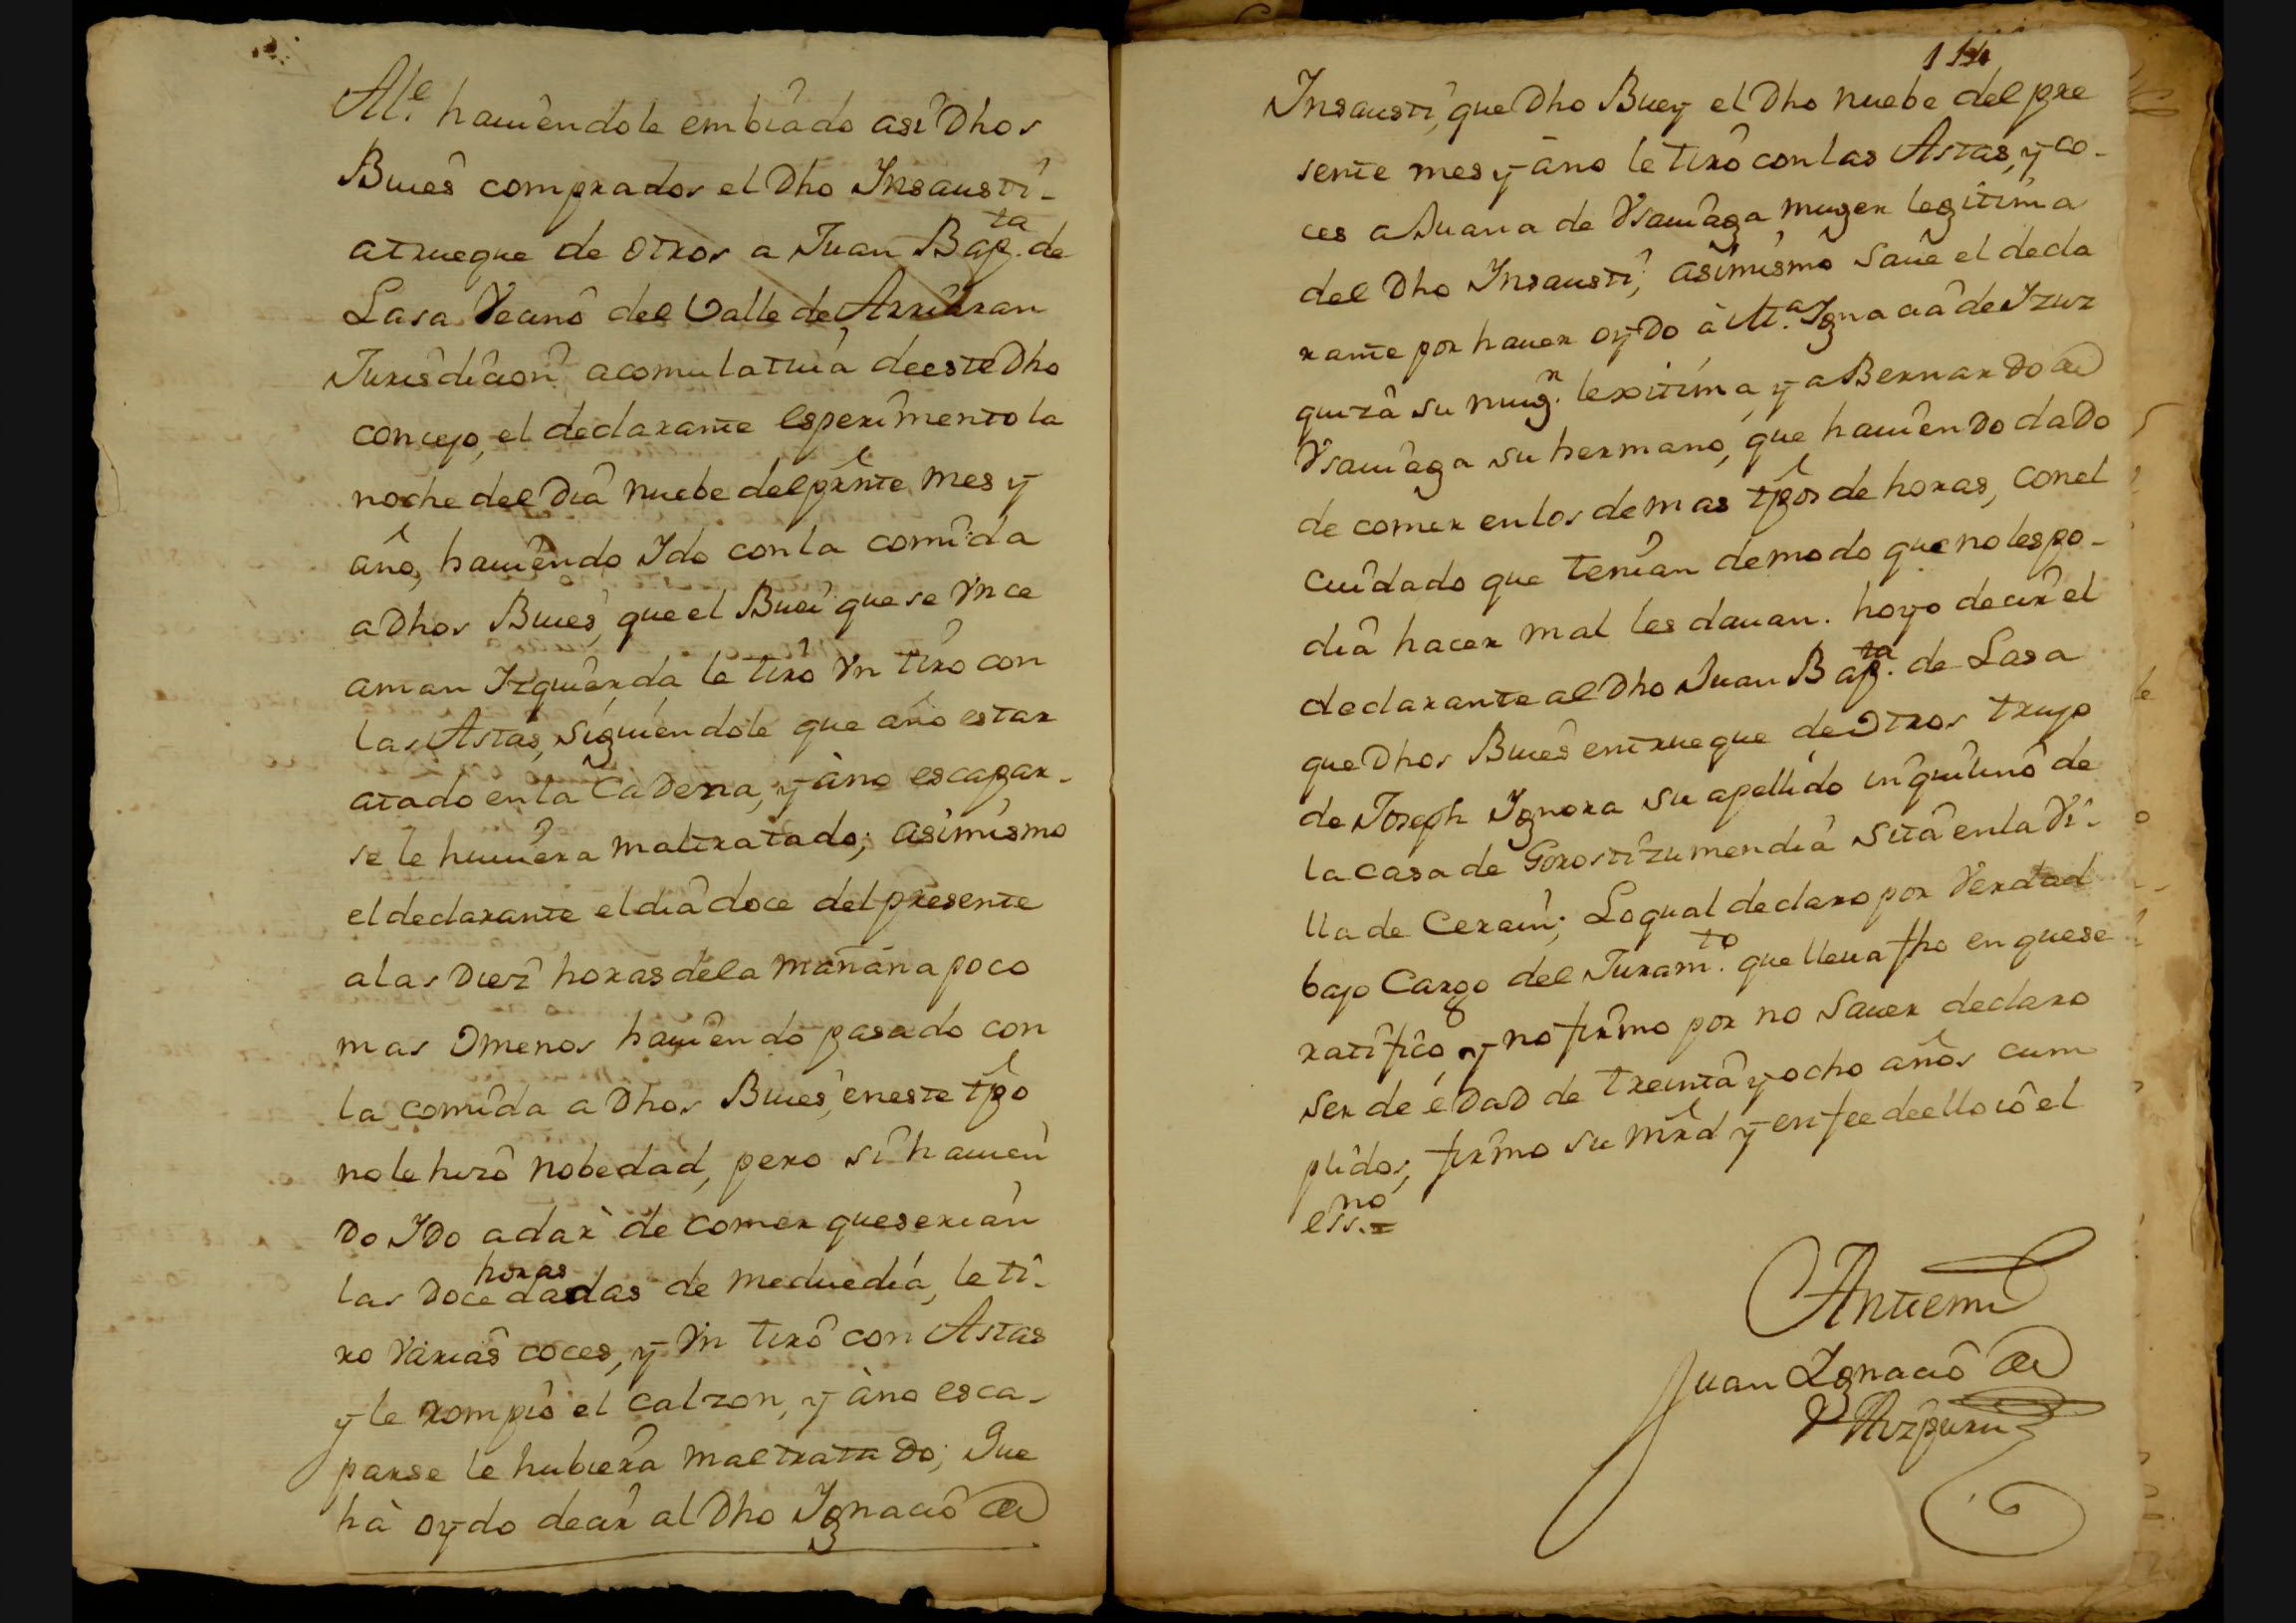 Al.e haviendole embiado asi Dhos
Bueies comprados el Dho Insausti
atrueque de otros a Juan Bap.ta de
Lasa Vecino del Valle de Arriaran
Jurisdicion acomulativa de este Dho
concejo, el declarante esperimento la
noche del Dia nuebe del prnte mes y
año, haviendo Ido con la comida
a Dhos Bueies, que el Buei que se Vnce
a man Izquierda le tiro Vn tiro con
las Astas, siguiendole que a no estar
atado en la Cadena, y a no escapar-
se le huviera maltratado; asimismo
el declarante el dia doce del presente
a las Diez horas de la mañana poco
mas o menos haviendo pasado con
la comida a Dhos Bueies, en este tpo
no le hizo nobedad, pero si havien
do Ido a dar de comer que serian
horas
las Doce dadas de mediedia, le ti-
ro varias coces, y Vn tiro con Astas
y le rompio el calzon, y a no esca-
parse le hubiera maltratado; Que
hà oydo decir al Dho Ignacio de
114
Insausti, que Dho Buey el Dho nuebe del pre
sente mes y año le tiro con las Astas, y co-
ces a Juana de Vsauiaga muger legitima
del Dho Insausti; asimismo save el decla
rante por haver oyDo à M.a Ignacia de Izur
quiza su mug.r lexitima y a Bernardo de
Vsauiaga su hermano, que haviendo dado
de comer en los demas tpos de horas, con el
cuidado que tenian de modo que no les po-
dia hacer mal les davan. hoyo decir el
declarante al Dho Juan Bap.ta de Lasa
que Dhos Bueies en trueque de otros trujo
de Joseph Ignora su apellido inquilino de
la casa de Gorostizumendia sita en la Vi-
lla de Cerain; Lo qual declaro por Verdad
bajo Cargo del Juram.to que lleva fho en que se
ratifico, y no firmo por no saver declaro
ser de eDaD de treinta y ocho años cum
plidos; firmo su mrd y en fee de ello io el
ess.no =
Antemi
Juan Ignacio de
Aizpuru